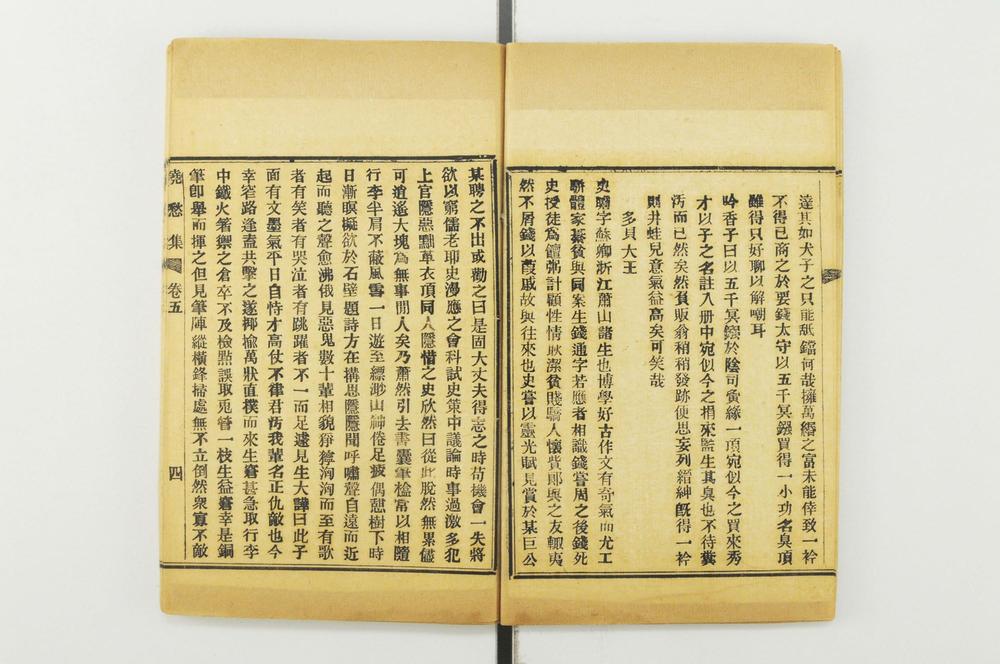 達其如犬子之只能舐鐺何哉擁萬緡之富未能倖致一衿
不得已商之於要錢太守以五千冥鏹買得一小功名臭頂
雖得只好聊以解嘲耳
吟香子曰以五千冥鏹於陰司夤緣一項宛似今之買來秀
才以子之名註入册中宛似今之捐來監生其臭也不待糞
汚而已然矣然負販翁稍稍發跡便思妄列縉紳旣得一衿
則井蛙兒意氣益高矣可笑哉
多貝大王
史聰字蘇卿浙江蕭山諸生也博學好古作文有奇氣而尤工
駢體家綦貧與同案生錢通字若應者相識錢嘗周之後錢死
史授徒為饘粥計顧性情耿潔貧賤驕人懷貲郎與之友輒夷
然不屑錢以葭戚故與往來也史嘗以靈光賦見賞於某巨公
某聘之不出或勸之曰是固大丈夫得志之時苟機會一失將
欲以窮儒老耶史漫應之會科試史策中議論時事過激多犯
上官隱惡黜革衣頂同人隱惜之史欣然曰從此脫然無累儘
可逍遙大塊為無事閒人矣乃蕭然引去書囊筆櫨常以相隨
行李半肩不蔽風雪一日遊至縹渺山腳倦足疲偶憩樹下時
日漸暝擬欲於石壁題詩方在搆思隱隱聞呼嘯聲自遠而近
起而聽之聲愈沸俄見惡鬼數十輩相貌猙獰洶洶而至有歌
者有笑者有哭泣者有跳躍者不一而足遽見生大譁曰此子
面有文墨氣平日自恃才高仗不律君汚我輩名正仇敵也今
幸窄路逢盍共擊之遂揶揄萬狀直撲而來生窘甚急取行李
中鐵火箸禦之倉卒不及檢點誤取兎管一枝生益窘幸是銅
筆卽舉而揮之但見筆陣縱橫鋒掃處無不立倒然衆寡不敵
澆愁集
卷五
四